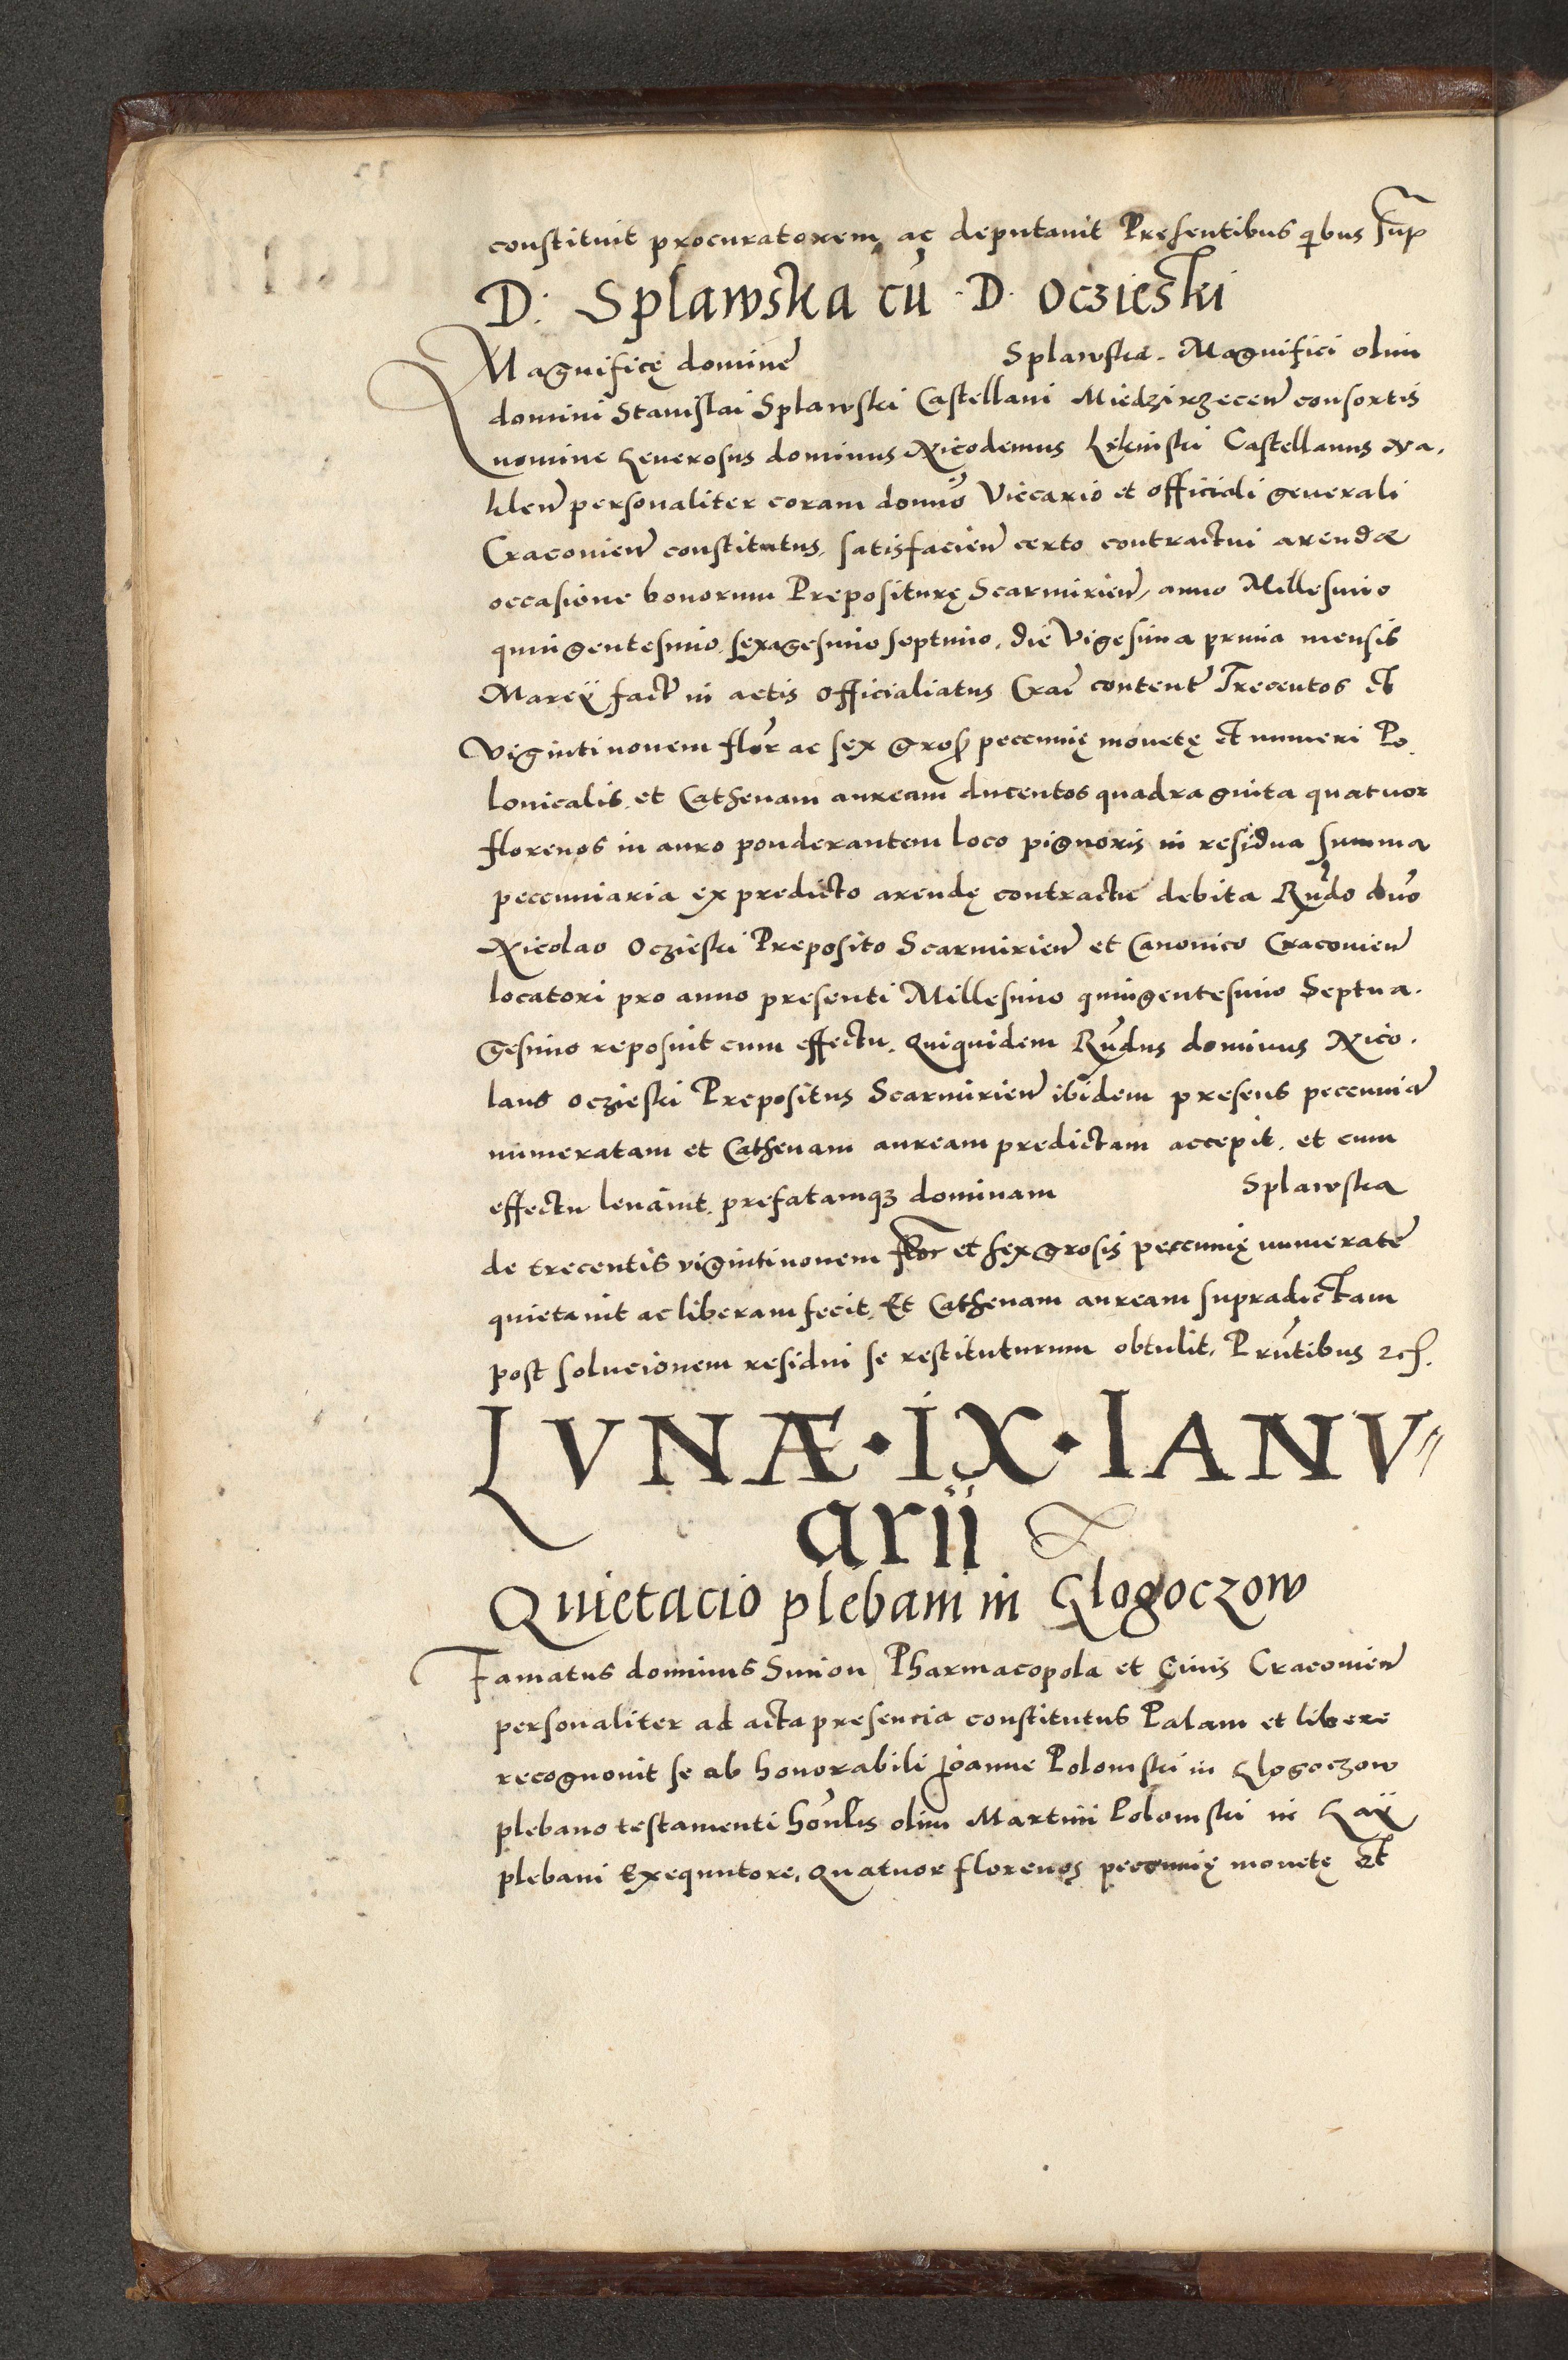 constituit procuratorem ac deputavit Presentibus qibus sup
D: Splawska cū D. Oczieski
Magnificę dominę Splawska. Magnifici olim
domini Stanislai Splawski Castellani Miedzirzecen̄ consortis
nomine Generosus dominus Nicodemus Castellanus Na.
klen̄ personaliter coram domno Viccario et officiali generali
Cracovien̄ constitutus, satisfacien̄ certo contractui arendæ
occasione bonorum Prepositurę Scarmirien̄, anno Millesimo
quingentesimo sexagesimo septimo, die Vigesima prima mensis
Marcÿ fact̄ in actis Officialiatus Crac̄ content̄ Trecentos et
Viginti novem flor̄ ac sex gros̄ peccunię monetę et numeri Po.
lonicalis et Cathenam auream ducentos quadraginta quatuor
florenos in auro ponderantem loco pignoris in residua summa
peccuniaria ex predicto arendę contractu debita Rn̄do dn̄o
Nicolao Oczieski Preposito Scarmirien̄ et Canonico Cracovien̄
locatori pro anno presenti Millesimo quingentesimo Septua.
gesimo reposuit cum effectu. Quiquidem Rn̄dus dominus Nico.
laus Oczieski Prepositus Scarmirien̄ ibidem presens peccuniā
numeratam et Cathenam auream predictam accepit, et cum
effectu levavit, prefatamqꝫ dominam Splawska
de trecentis viginti novem flor̄ et sex grosis peccunię numeratę
quietavit ac liberam fecit. Et Cathenam auream supradictam
post solucionem residui se restituturum obtulit. Prn̄tibus ꝛcꝭ.
LVNÆ · IX · IANV〃
arii
Quietacio plebani in Glogoczow
Famatus dominus Simon Pharmacopola et Civis Cracovien̄
personaliter ad acta presencia constitutus Palam et libere
recognovit se ab honorabili Joanne Polomski in Glogoczow
plebano testamenti hon̄lis olim Martini Polomski in Gay
plebani Exequutore, Quatuor florenos peccunię monetę Et